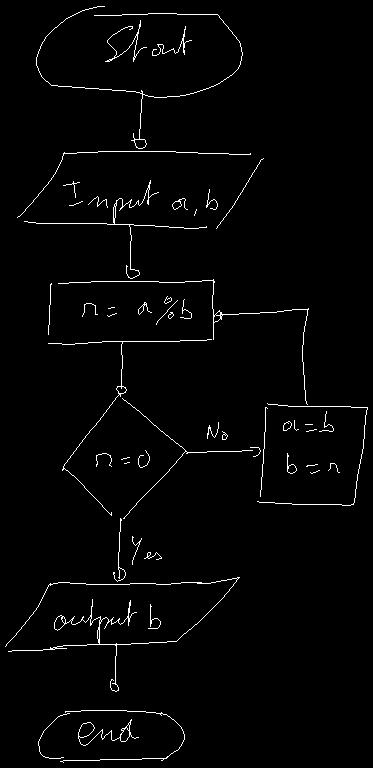 Start
Input a, b
r = a % b
r = 0
No
a = b
b = r
Yes
output b
end